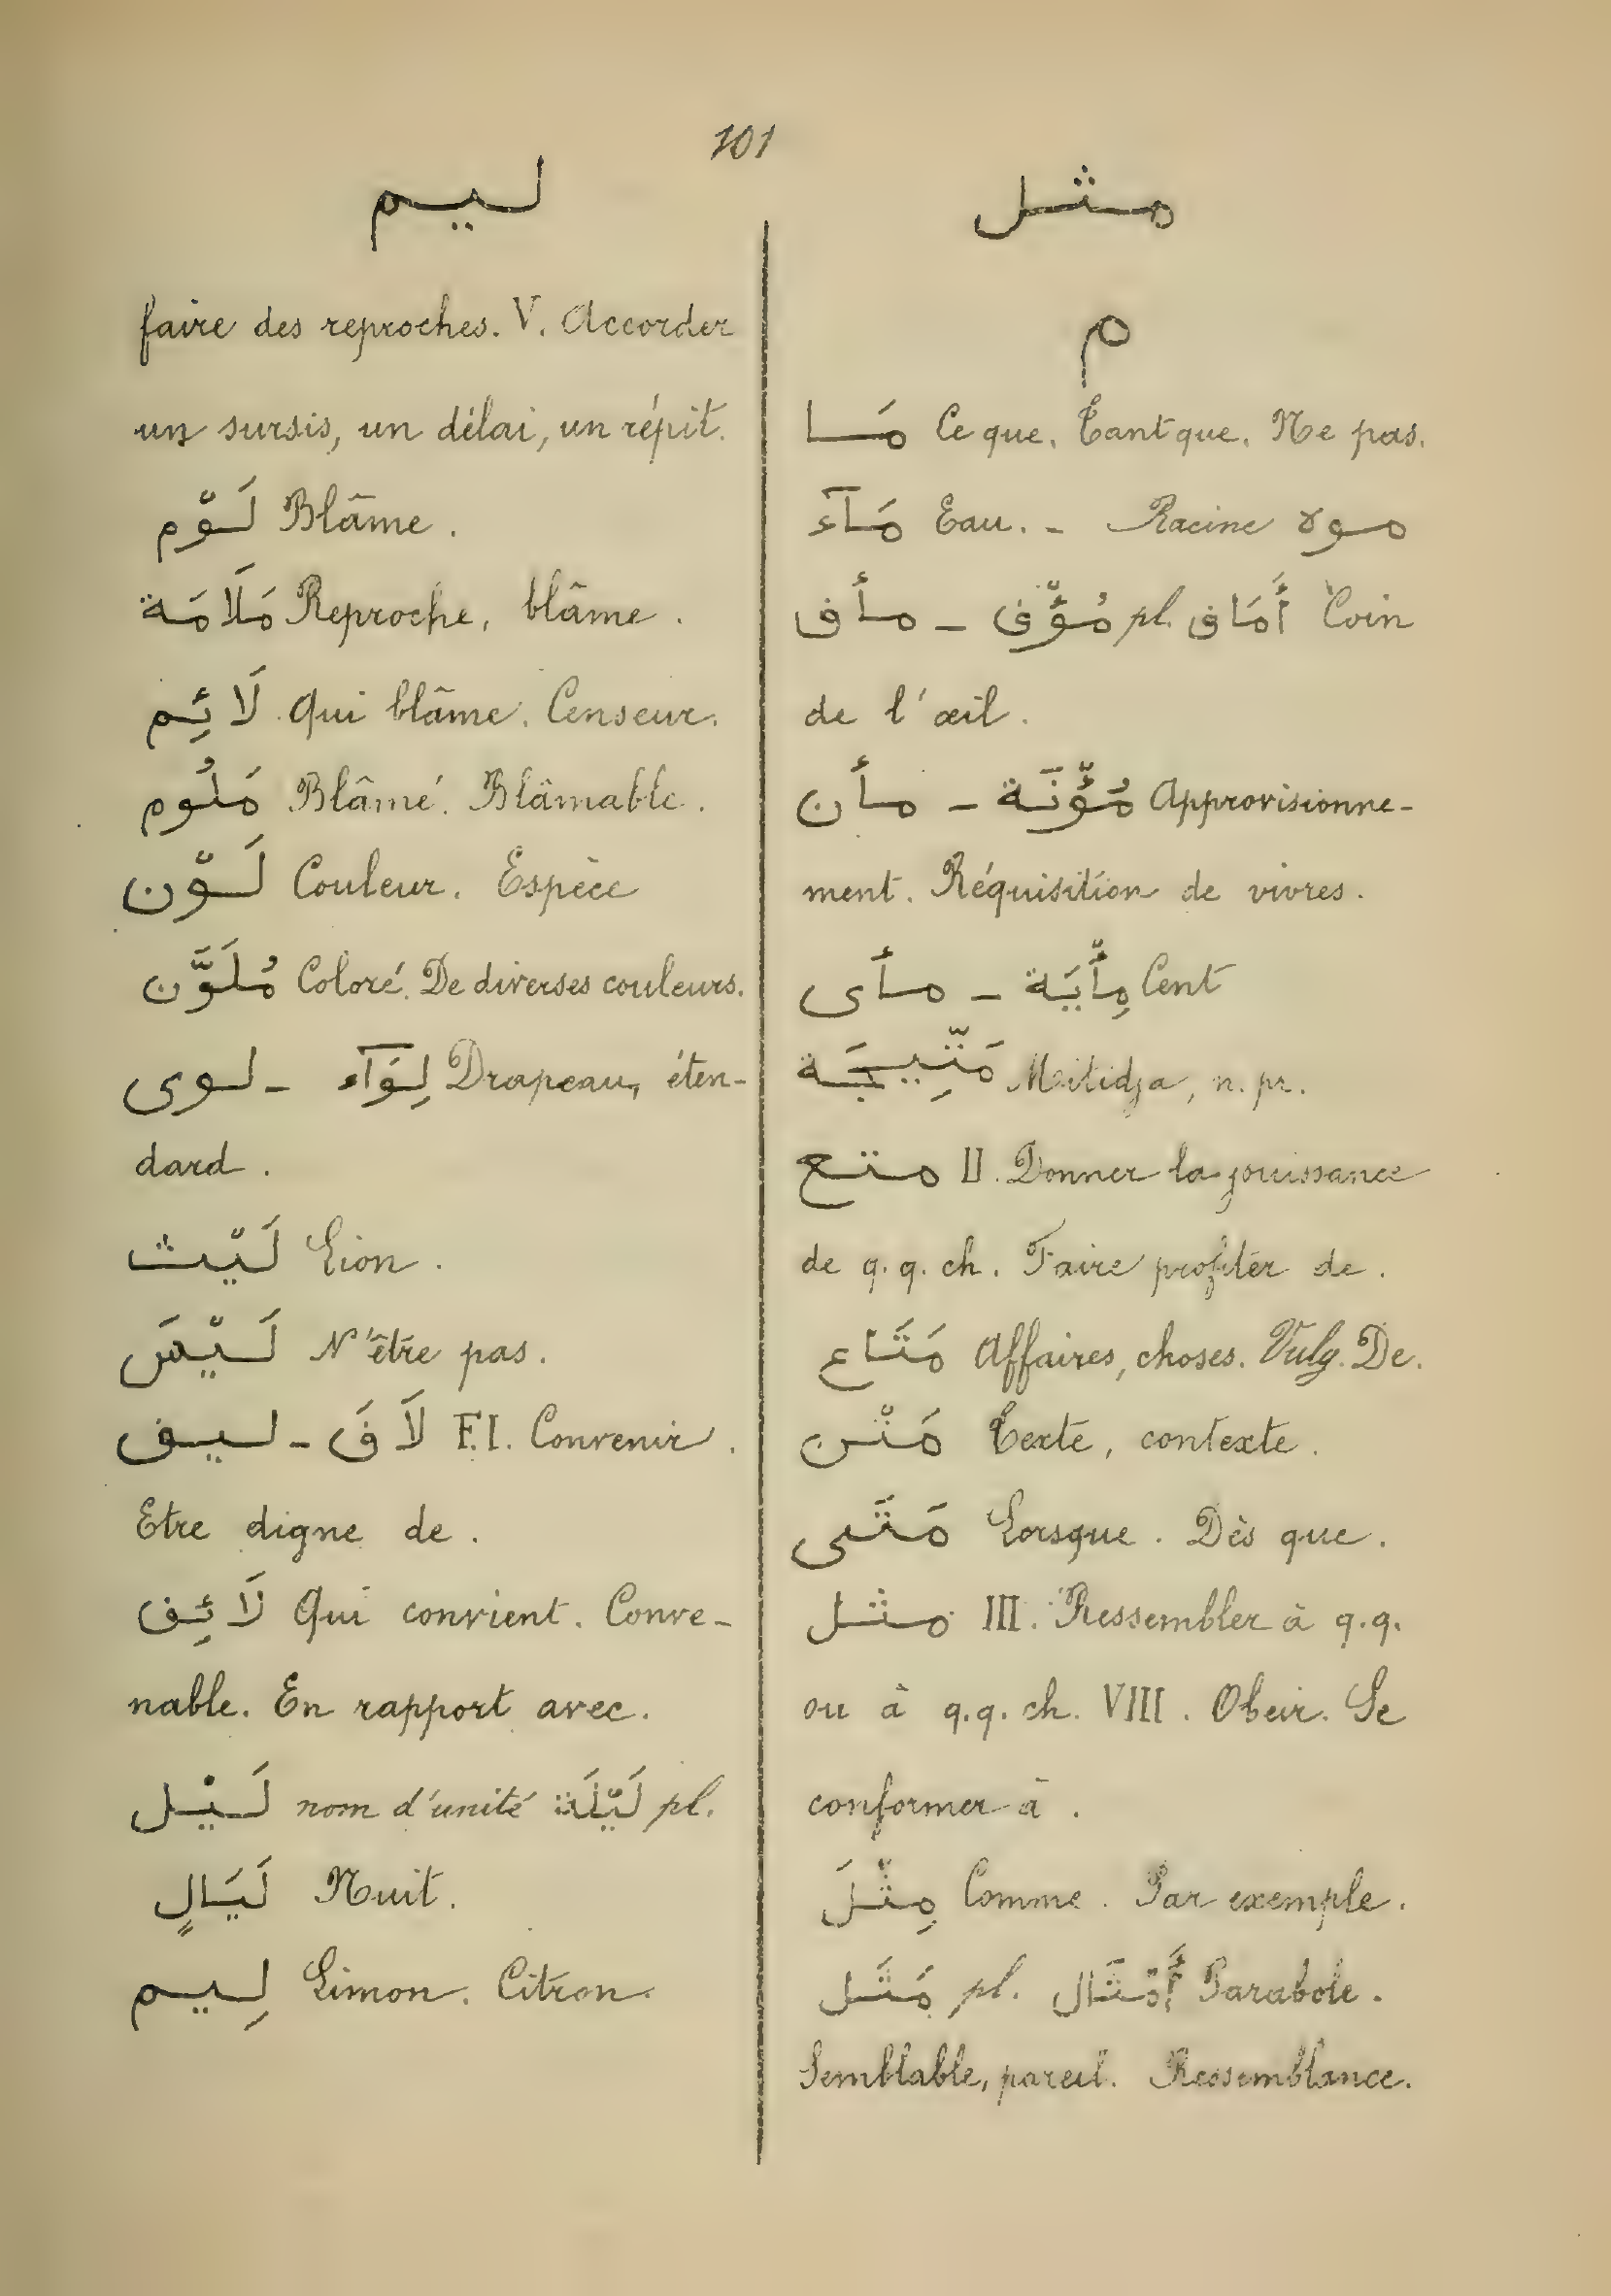 101
ليم
faire des reproches. V. Accorder
un sursis, un délai, un répit.
لَوْم Blâme.
مَلَامَة Reproche, blâme.
لَائِم Qui blâme. Censeur.
مَلُوم Blâmé. Blâmable.
لَوْن Couleur. Espèce
مُلَوَّن Coloré. De diverses couleurs.
لوى - لِوَآء Drapeau, éten-
dard.
لَيْث Lion.
لَيْسَ N'être pas.
ليق - لَاقَ F.I. Convenir.
Etre digne de.
لَائِق Qui convient. Conve-
nable. En rapport avec.
لَيْل nom d'unité لَيْلَة pl.
لَيَالٍ Nuit.
لِيم Limon. Citron.
مثل
م
مَا Ce que. Tant que. Ne pas.
مَآء Eau. - Racine موه
مأق - مُؤْق pl. أَمَاق Coin
de l'œil.
مأن - مُؤْنَة Approvisionne-
ment. Réquisition de vivres.
مأى - مِأْيَة Cent
مَتِّيجَة Mitidja, n. pr.
متع II. Donner la jouissance
de q.q. ch. Faire profiter de.
مَتَاع Affaires, choses. Vulg. De.
مَتْن Texte, contexte.
مَتَى Lorsque. Dès que.
مثل III. Ressembler à q.q.
ou à q.q. ch. VIII. Obeir. Se
conformer à.
مِثْلَ Comme. Par exemple.
مَثَل pl. أَمْثَال Parabole.
Semblable, pareil. Ressemblance.